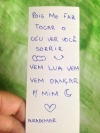 POIS ME FAZ
TOCAR O
CÉU VER VOCÊ
SORRIR
VEM LUA VEM
VEM DANÇAR
P/ MIM